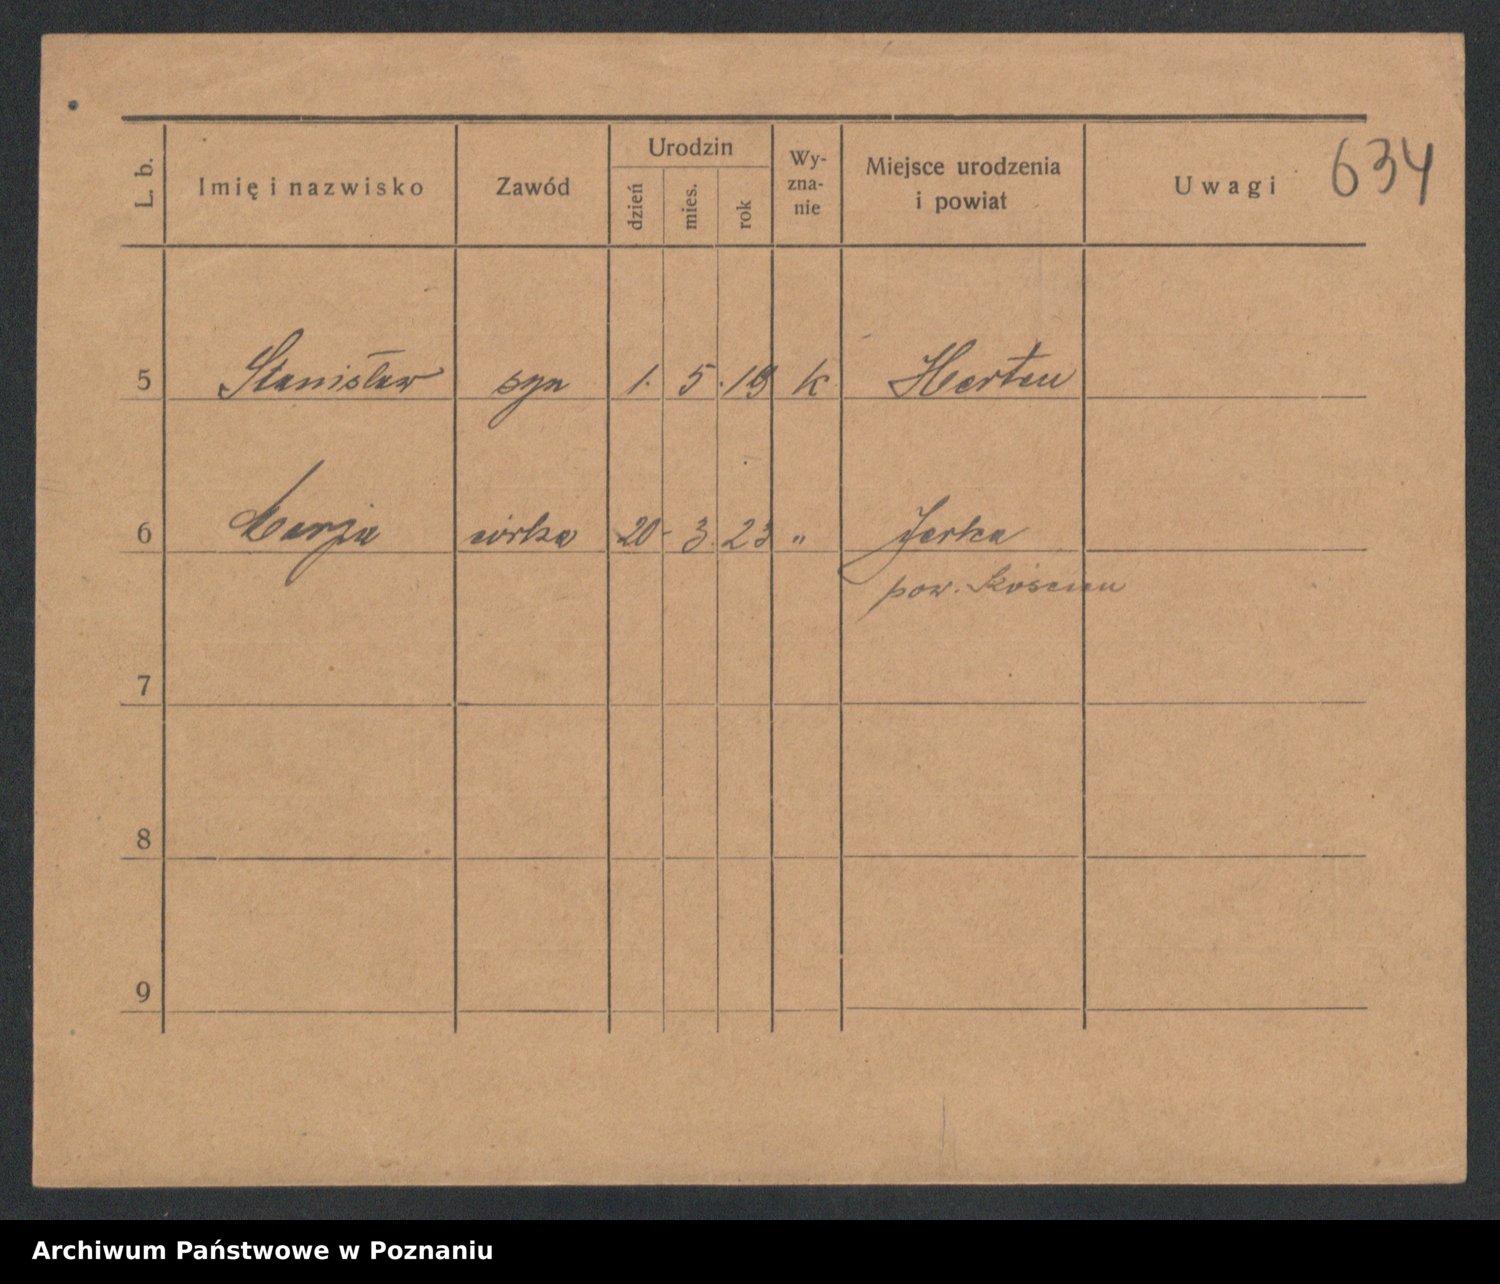 634
L. b. Imię i nazwisko Zawód Urodzin dzień mies. rok Wy-zna-nie Miejsce urodzenia i powiat Uwagi
5 Stanisław syn 1. 5. 19 k Herten
6 Marja córka 20 3. 23 „ Jerka
pow. Kościan
7
8
9
Archiwum Państwowe w Poznaniu